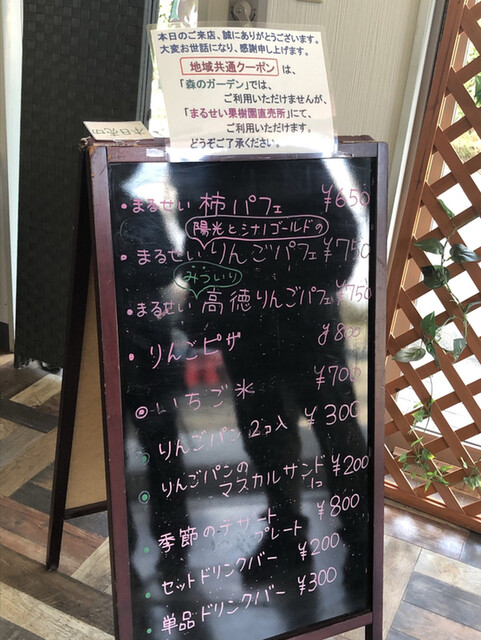 本日のご来店、誠にありがとうございます。
大変お世話になり、感謝申し上げます。
地域共通クーポン は、
「森のガーデン」では、
ご利用いただけませんが、
「まるせい果樹園直売所」にて、
ご利用いただけます。
どうぞご了承ください。
本日売切
・まるせい 柿パフェ ¥650
陽光とシナノゴールドの
・まるせいりんごパフェ ¥750
みついり
・まるせい 高徳りんごパフェ ¥750
・りんごピザ ¥800
◎いちご氷 ¥700
りんごパン 2コ入 ¥300
りんごパンの
マスカルサンド 1コ ¥200
季節のデザート
プレート ¥800
・セットドリンクバー ¥200
・単品ドリンクバー ¥300